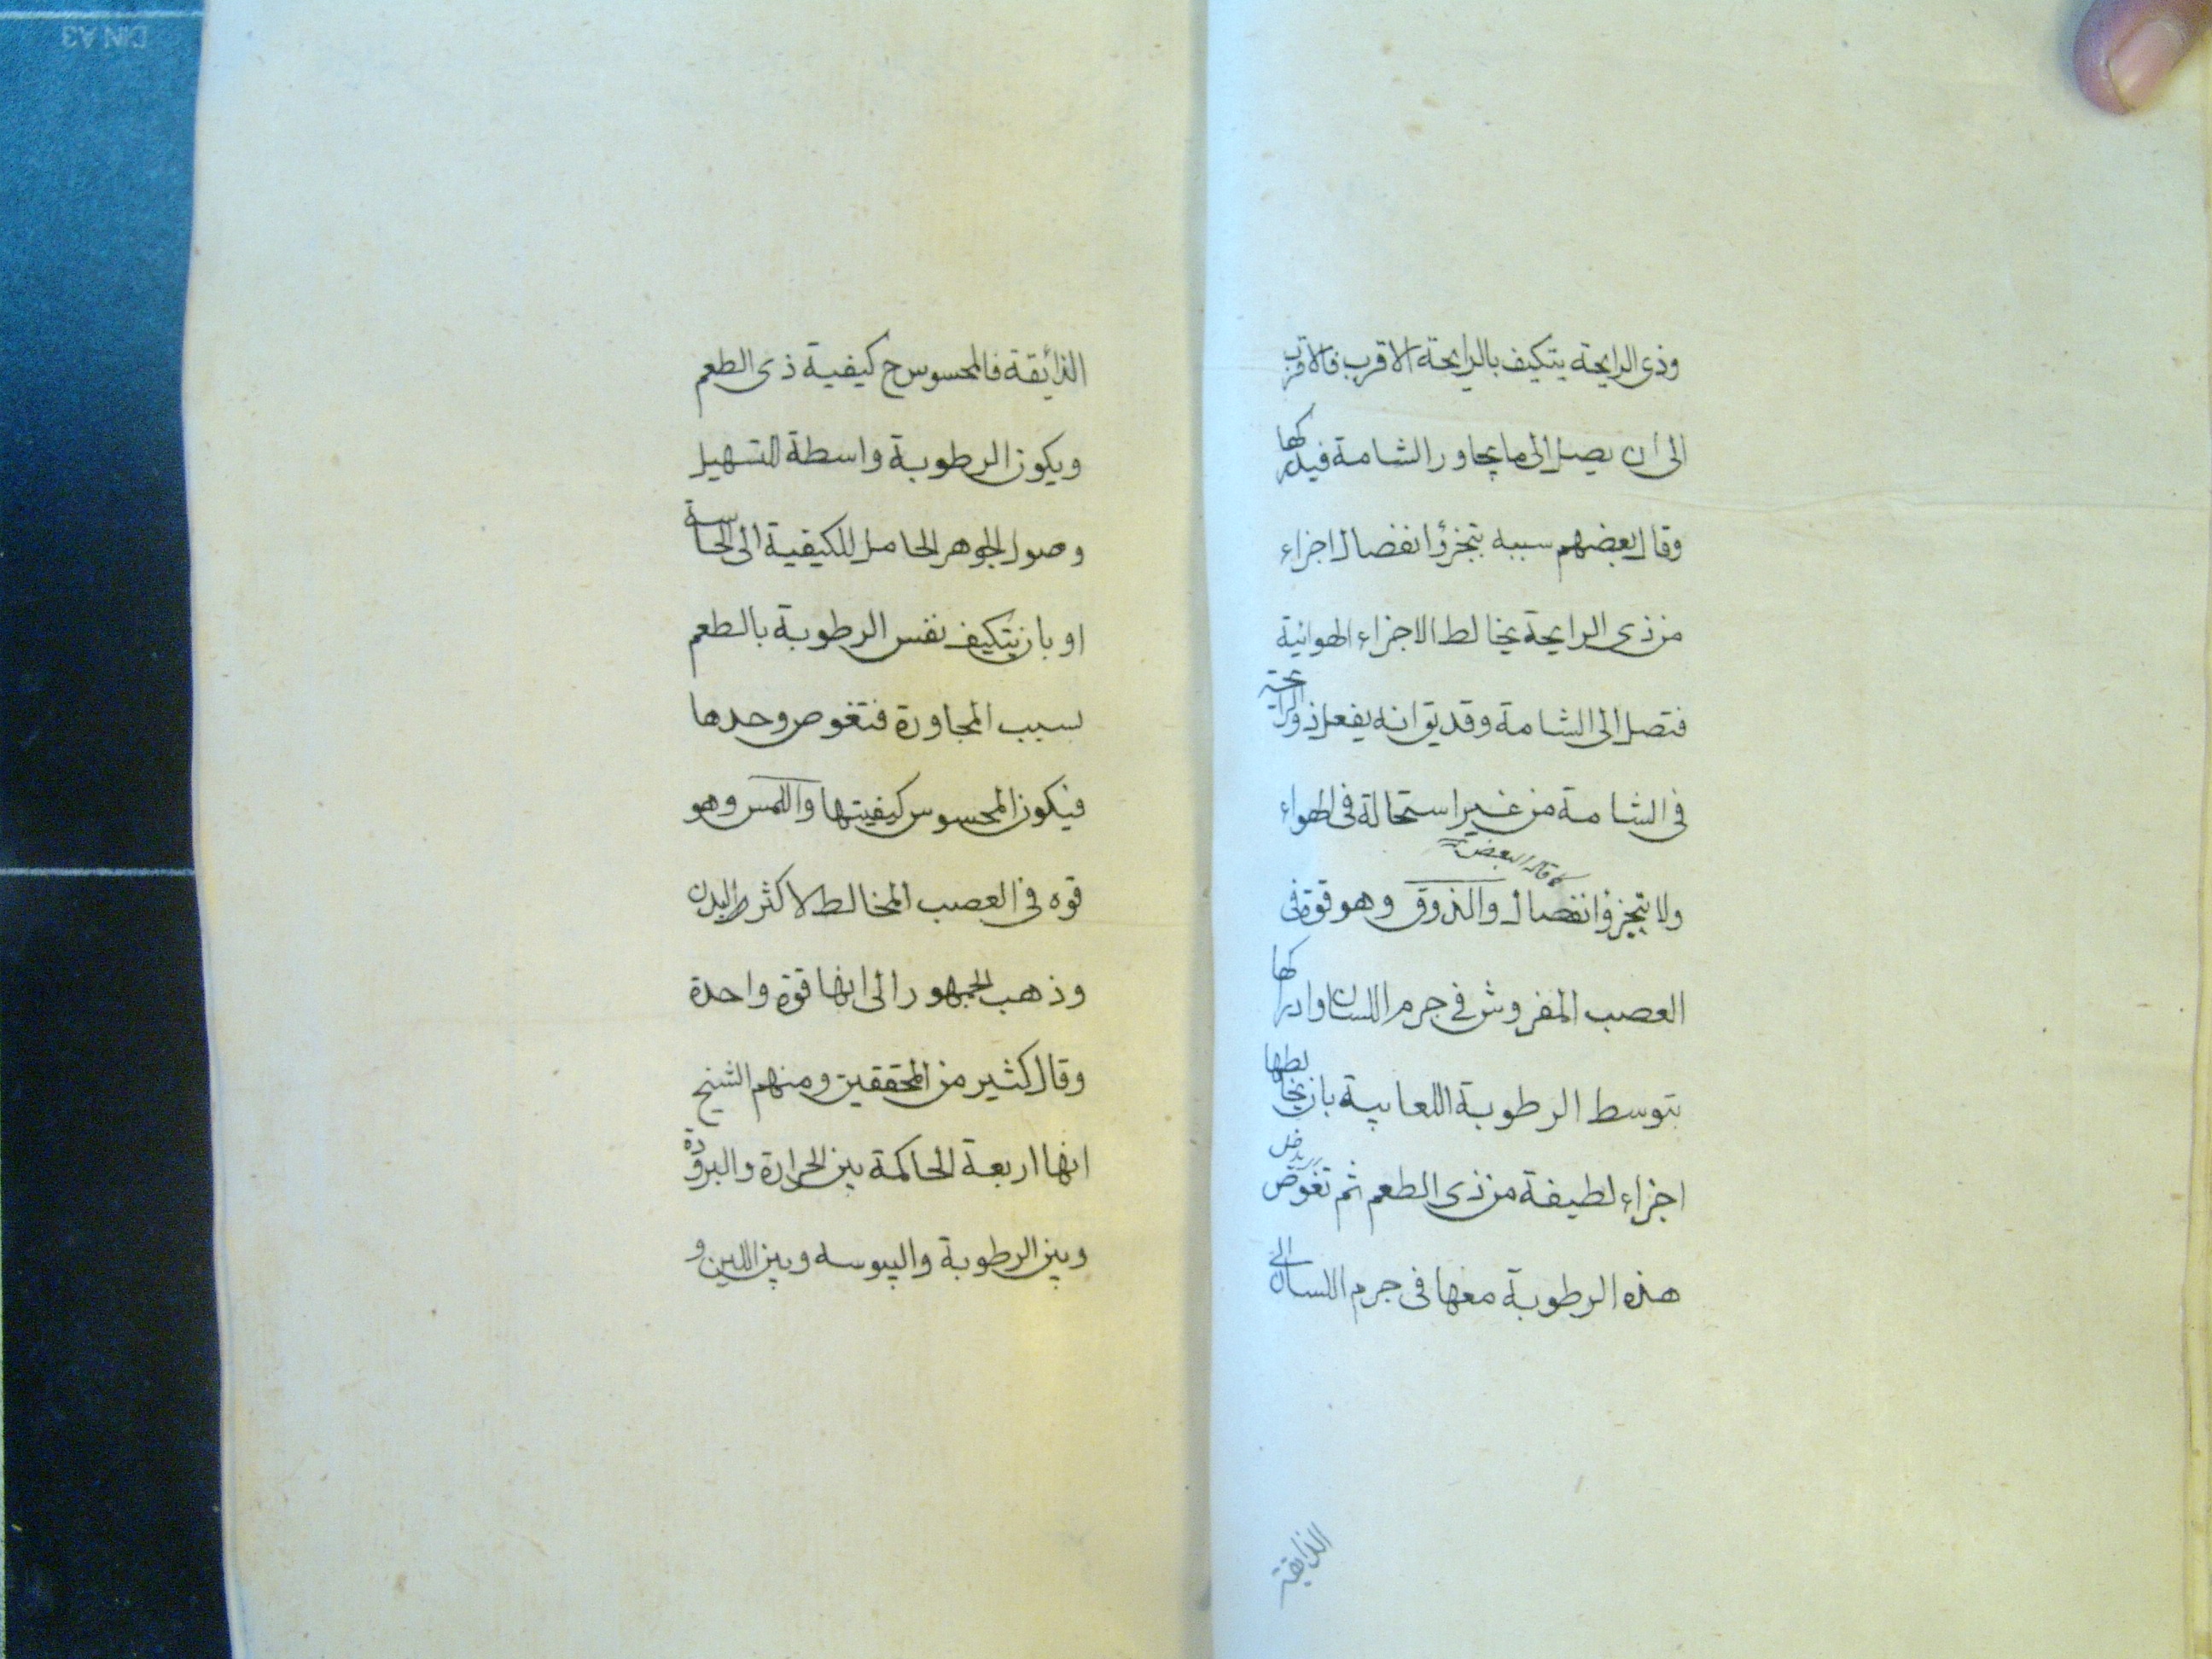 وذى الرايحة يتكيف بالرايحة الاقرب فالاقرب
الى ان يصل الى ما يجاور الشامة فيدركها
وقال بعضهم سببه تبخر وانفصال اجزاء
من ذى الرايحة يخالط الاجزاء الهوائية
فتصل الى الشامة وقد يق انه يفعل ذو الرايحة
فى الشامة من غير استحالة فى الهواء
كما قاله البعض
ولا تبخر وانفصال والذوق وهو قوة فى
العصب المفروش فى جرم اللسان وادراكها
بتوسط الرطوبة اللعابية بان يخالطها
تدخل
اجزاء لطيفة من ذى الطعم ثم تغوص
هذه الرطوبة معها فى جرم اللسان الى
الذايقة
الذائقة فالمحسوس ح كيفية ذى الطعم
ويكون الرطوبة واسطة لتسهيل
وصول الجوهر الحامل للكيفية الى الحاسة
او بان يتكيف نفس الرطوبة بالطعم
بسبب المجاورة فتغوص وحدها
فيكون المحسوس كيفيتها واللمس وهو
قوه فى العصب المخالط لاكثر البدن
وذهب الجمهور الى انها قوة واحدة
وقال كثير من المحققين ومنهم الشيخ
انها اربعة الحاكمة بين الحرارة والبرودة
وبين الرطوبة واليبوسه وبين اللين و